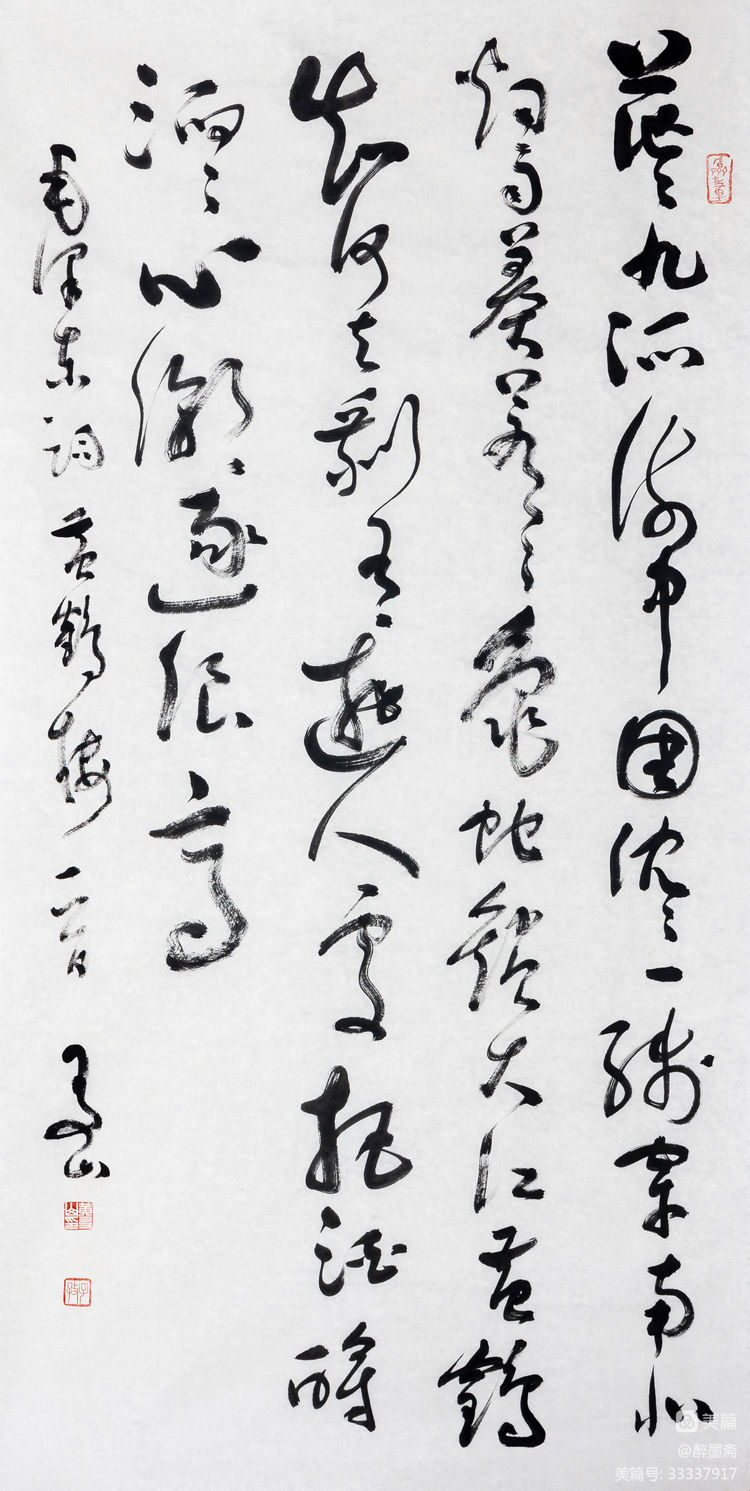 茫々九派流中国沈々一线穿南北
烟雨莽苍々龟蛇锁大江黄鹤
知何去剩有遊人处把酒酹
滔々心潮逐浪高
毛泽东词黄鹤楼一首 山
美篇
@醉墨斋
美篇号: 33337917